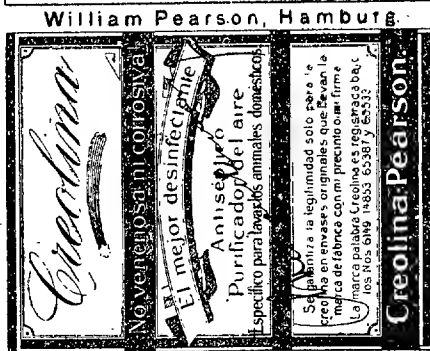 William Pearson, Hamburg.
Creolina
No venenosa ni corrosiva!
El mejor desinfectante
Antiséptico
Purificador del aire
Especifico para lavar los animales domesticos.
Se garantiza la legitimidad solo para la
creolina en envases originales que llevan la
marca de fabrica con mi precinto o mi firma
La marca palabra Creolina es registrada bajo
los Nos 6119 14853 65387 y 65533
Creolina-Pearson.